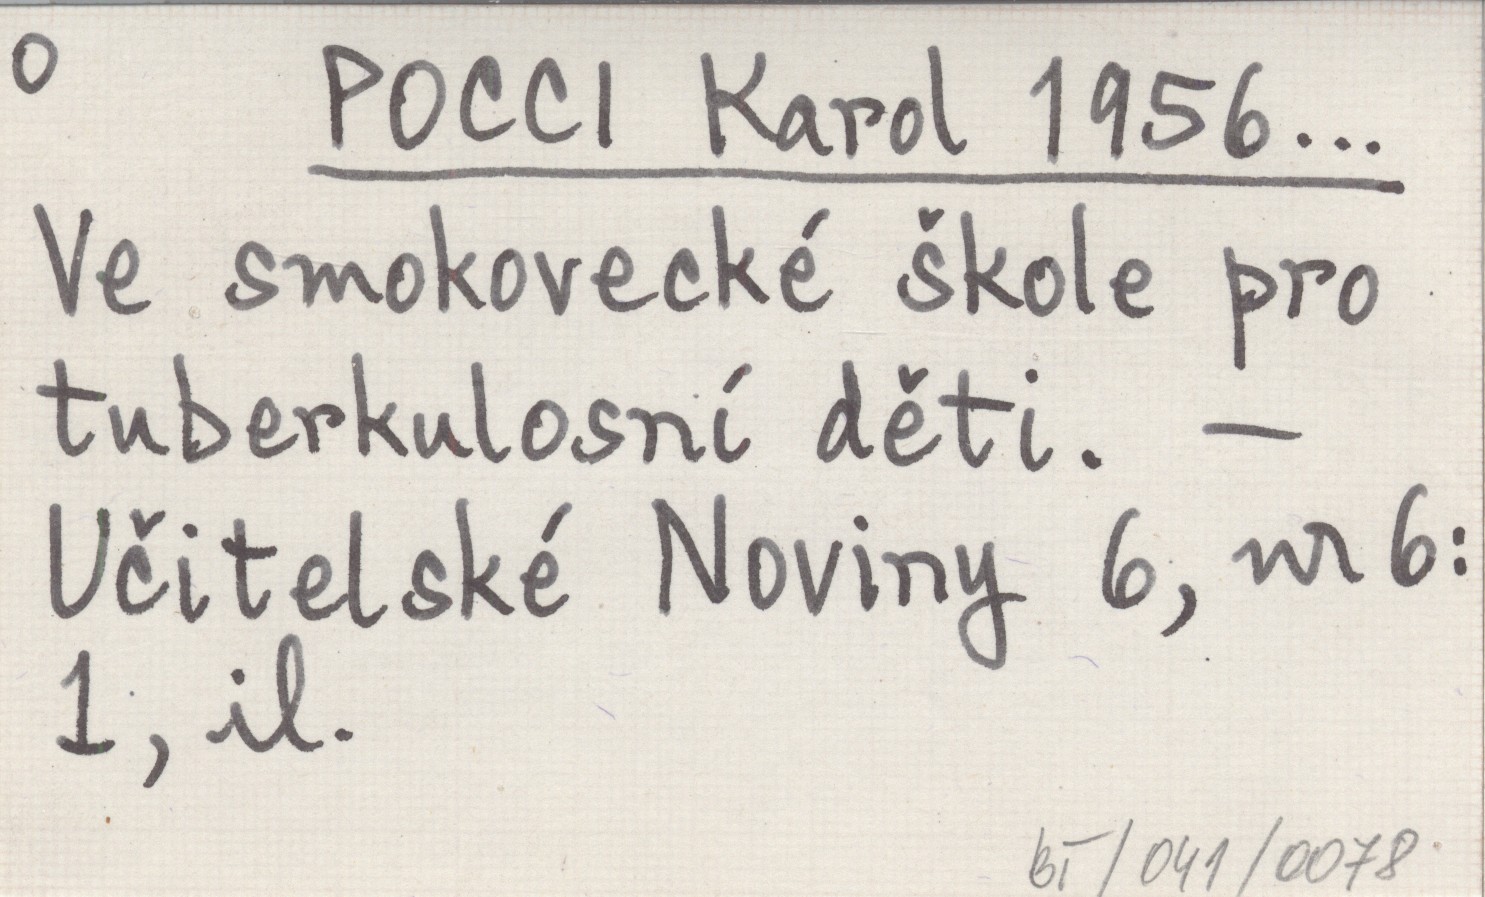 O
POCCI Karol 1956...
Ve smokovecké škole pro
tuberkulosní děti. —
Učitelské Noviny 6, nr 6:
1, il.
BT/041/0078